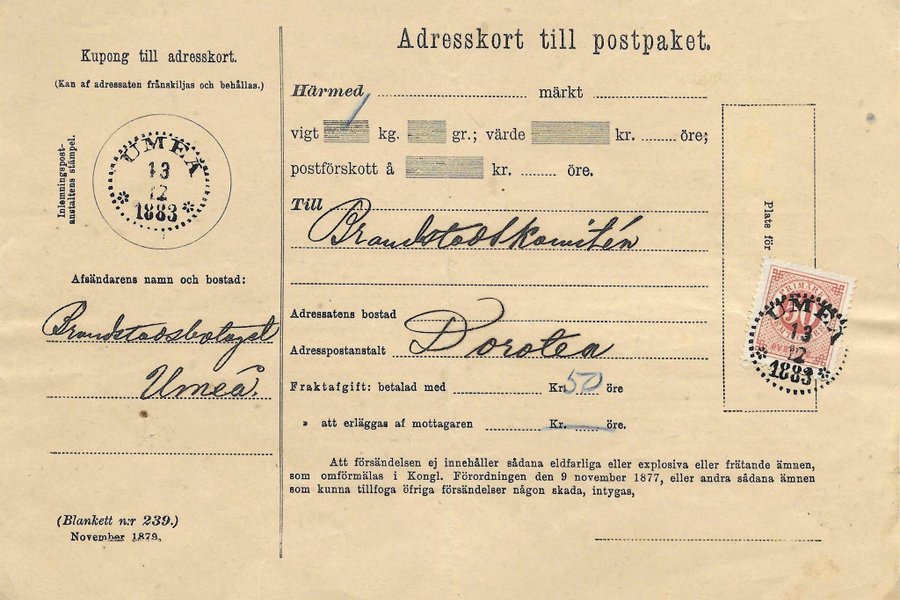 Kupong till adresskort.
(Kan af adressaten frånskiljas och behållas.)
Inlemningspost-
anstaltens stämpel.
UMEÅ
13
12
1883
Afsändarens namn och bostad:
Brandstodsbolaget
Umeå.
(Blankett n:r 239.)
November 1879.
Adresskort till postpaket.
Härmed märkt
vigt 1 kg. gr.; värde kr. öre;
postförskott å kr. öre.
Till
Brandstodskomitén
Adressatens bostad
Adresspostanstalt Dorotea
Fraktafgift: betalad med Kr. 50 öre
» att erläggas af mottagaren Kr. öre.
Att försändelsen ej innehåller sådana eldfarliga eller explosiva eller frätande ämnen,
som omförmälas i Kongl. Förordningen den 9 november 1877, eller andra sådana ämnen
som kunna tillfoga öfriga försändelser någon skada, intygas,
Plats för
FRIMÄR
50
UMEÅ
13
12
1883